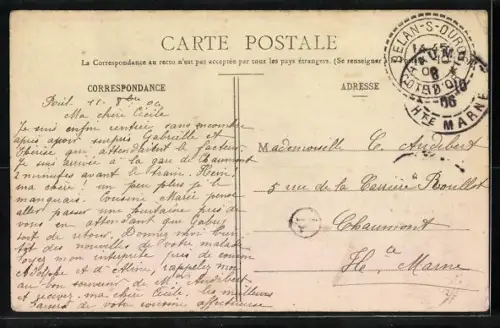 CARTE POSTALE
La Correspondance au recto n'est pas acceptée par tous les pays étrangers. (Se renseigner
CORRESPONDANCE
ADRESSE
BELAN-S-OURCE
COTE D'OR
Hte MARNE
06
Ma chère Cécile
Je suis enfin rentrée sans encombre
après avoir surpris Gabrielle et
Thérèse qui attendaient le facteur.
Je suis arrivée à la gare de Chaumont
2 minutes avant le train. Hein!
ma chère! un peu plus je le
manquais. Cousine Marie pense
aller passer une huitaine près de
vous en attendant que
soit de retour. Donnez-moi
des nouvelles de votre malade
Soyez mon interprète près de cousine
et d'Aline, rappelez moi
au bon souvenir de Mr Audibert
et recevez ma chère Cécile, les meilleurs
de votre cousine affectueuse
Mademoiselle C. Audibert
5 rue de la Carrière Roullot
Chaumont
Hte Marne